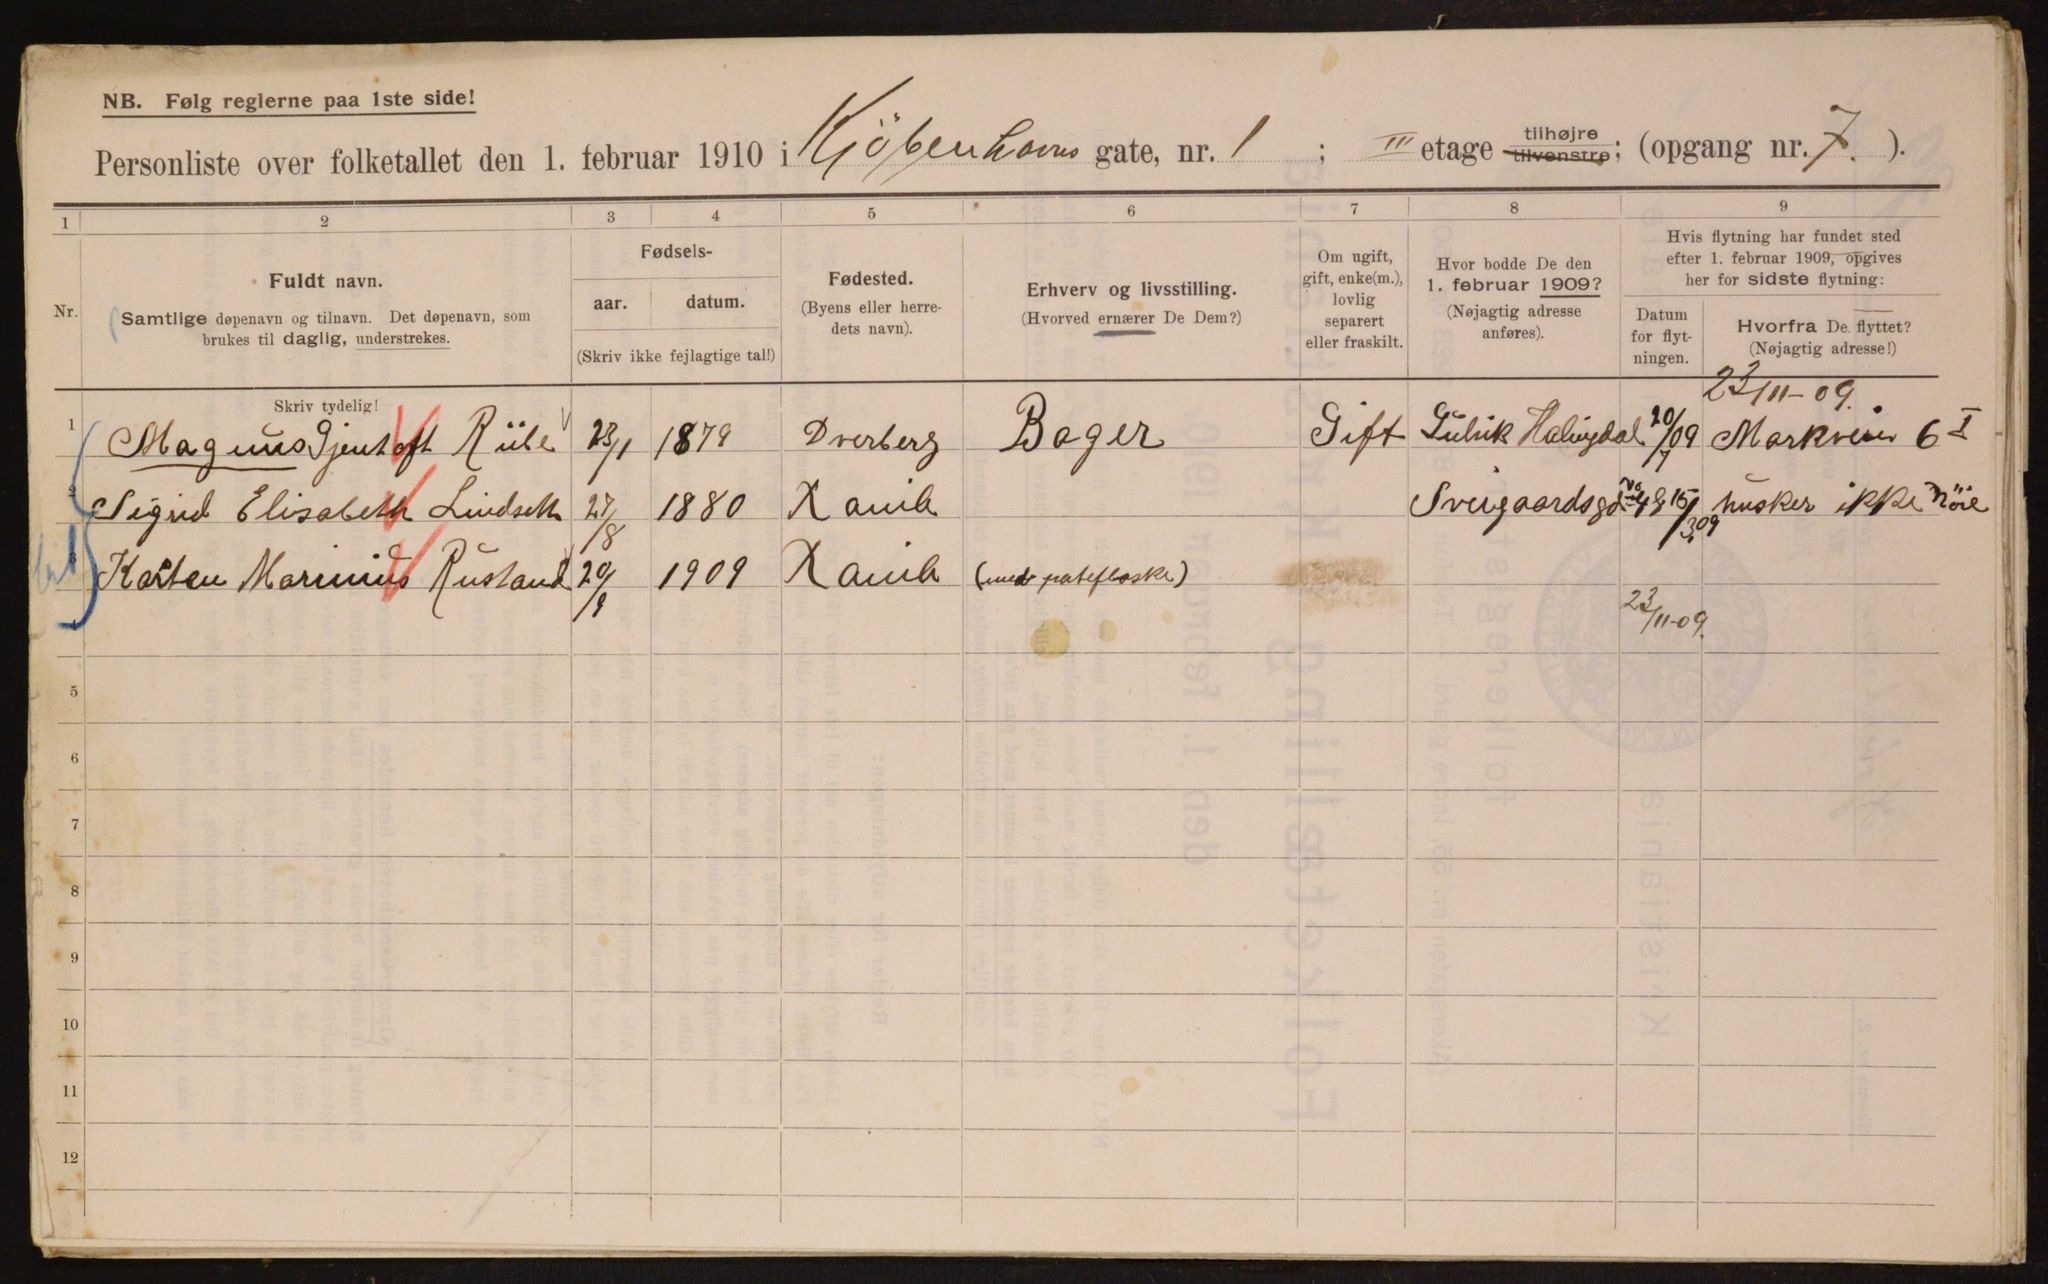 NB. Følg reglerne paa 1ste side!
Personliste over folketallet den 1. februar 1910 i Kjøbenhavns gate, nr. 1 ; III etage tilhøjre tilvenstre; (opgang nr. 7. ).
1 2 3 4 5 6 7 8 9
Nr.
Fuldt navn.
Samtlige døpenavn og tilnavn. Det døpenavn, som
brukes til daglig, understrekes.
Skriv tydelig!
Fødsels-
aar. datum.
(Skriv ikke fejlagtige tal!)
Fødested.
(Byens eller herre-
dets navn).
Erhverv og livsstilling.
(Hvorved ernærer De Dem?)
Om ugift,
gift, enke(m.),
lovlig
separert
eller fraskilt.
Hvor bodde De den
1. februar 1909?
(Nøjagtig adresse
anføres).
Hvis flytning har fundet sted
efter 1. februar 1909, opgives
her for sidste flytning:
Datum
for flyt-
ningen.
Hvorfra De flyttet?
(Nøjagtig adresse!)
23/11-09.
1 Magnus Gjentoft Riibe 23/1 1879 Dverberg Bager Gift Gulvik Halingdal 20/7 09 Markvein 6 I
2 Sigrid Elisabeth Lindseth 27/8 1880 Xania 48 15/3 09 husker ikke nöie
3 Karsten Marinius Rustand 20/9 1909 Xania (med pateflaske)
23/11-09.
4
5
6
7
8
9
10
11
12